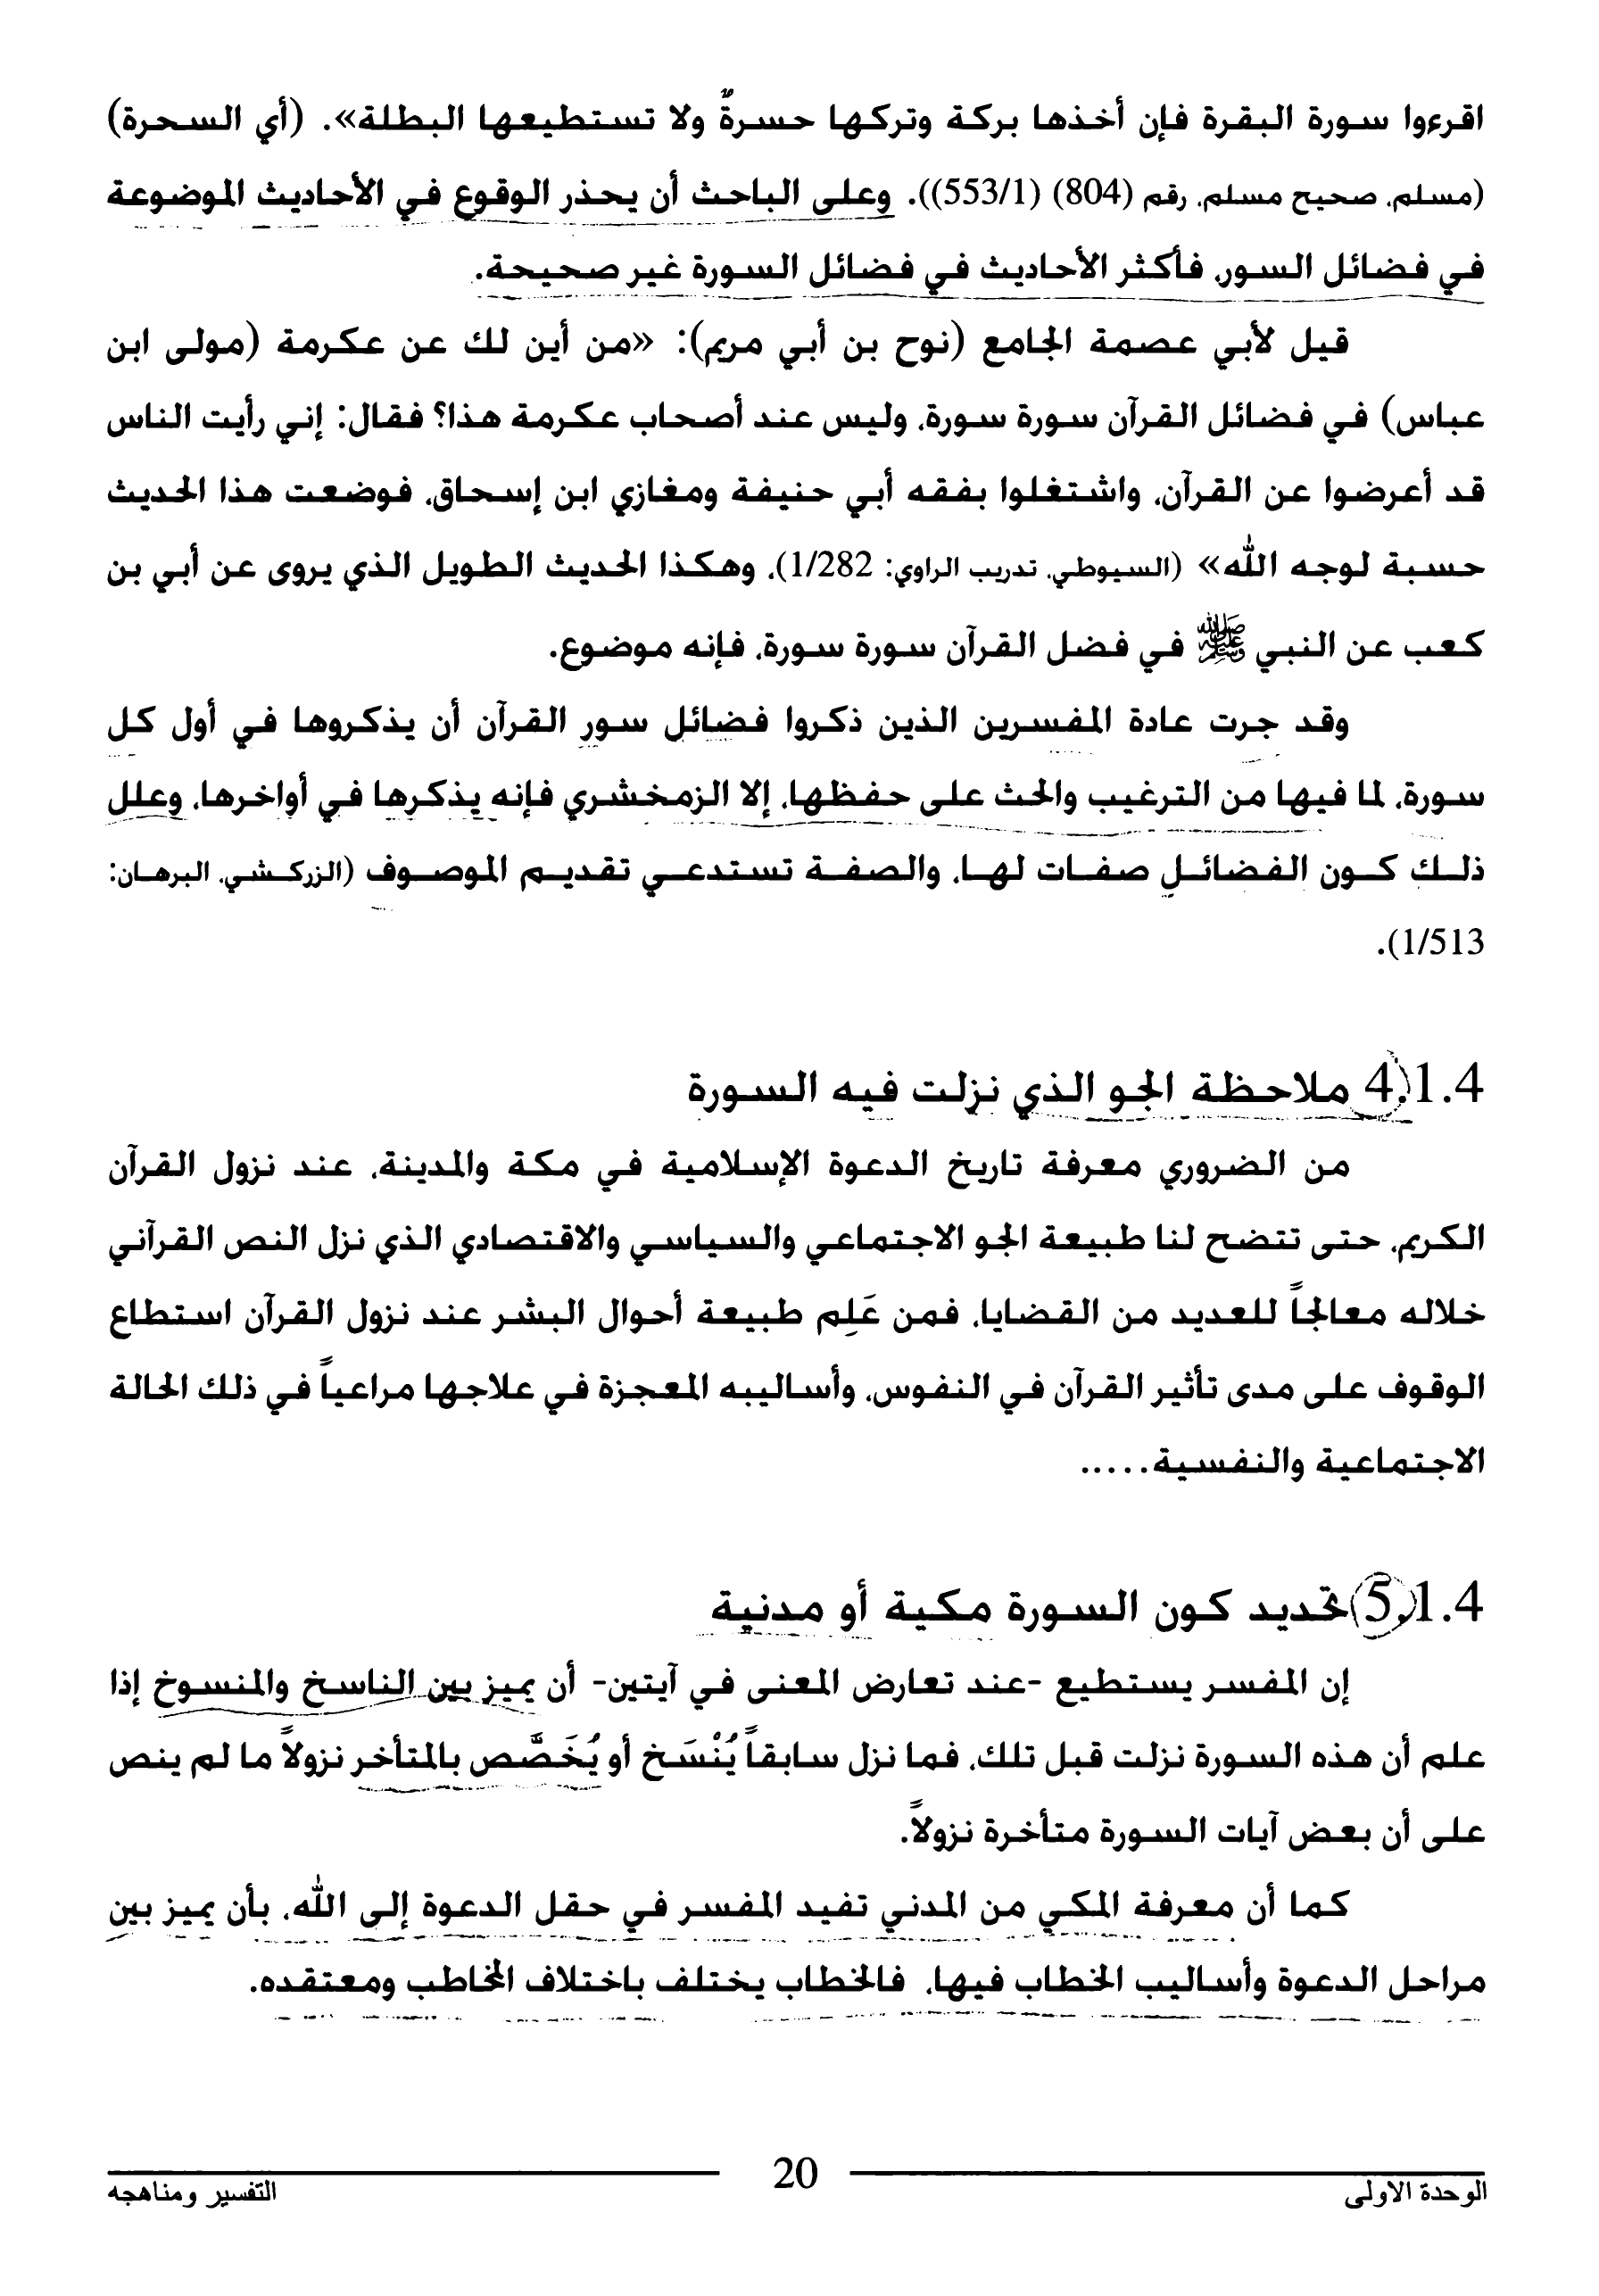 اقرءوا سورة البقرة فإن أخذها بركة وتركها حسرةٌ ولا تستطيعها البطلة». (أي السحرة)
(مسلم، صحيح مسلم، رقم (804) (553/1)). وعلى الباحث أن يحذر الوقوع في الأحاديث الموضوعة
في فضائل السور، فأكثر الأحاديث في فضائل السورة غير صحيحة.
قيل لأبي عصمة الجامع (نوح بن أبي مريم): «من أين لك عن عكرمة (مولى ابن
عباس) في فضائل القرآن سورة سورة، وليس عند أصحاب عكرمة هذا؟ فقال: إني رأيت الناس
قد أعرضوا عن القرآن، واشتغلوا بفقه أبي حنيفة ومغازي ابن إسحاق، فوضعت هذا الحديث
حسبة لوجه الله» (السيوطي، تدريب الراوي: 1/282)، وهكذا الحديث الطويل الذي يروى عن أبي بن
كعب عن النبي ﷺ في فضل القرآن سورة سورة، فإنه موضوع.
وقد جرت عادة المفسرين الذين ذكروا فضائل سور القرآن أن يذكروها في أول كل
سورة، لما فيها من الترغيب والحث على حفظها، إلا الزمخشري فإنه يذكرها في أواخرها، وعلل
ذلك كون الفضائل صفات لها، والصفة تستدعي تقديم الموصوف (الزركشي، البرهان:
1/513).
4.1.4 ملاحظة الجو الذي نزلت فيه السورة
من الضروري معرفة تاريخ الدعوة الإسلامية في مكة والمدينة، عند نزول القرآن
الكريم، حتى تتضح لنا طبيعة الجو الاجتماعي والسياسي والاقتصادي الذي نزل النص القرآني
خلاله معالجاً للعديد من القضايا، فمن عَلِم طبيعة أحوال البشر عند نزول القرآن استطاع
الوقوف على مدى تأثير القرآن في النفوس، وأساليبه المعجزة في علاجها مراعياً في ذلك الحالة
الاجتماعية والنفسية.....
5.1.4 تحديد كون السورة مكية أو مدنية
إن المفسر يستطيع -عند تعارض المعنى في آيتين- أن يميز بين الناسخ والمنسوخ إذا
علم أن هذه السورة نزلت قبل تلك، فما نزل سابقاً يُنْسَخ أو يُخَصَّص بالمتأخر نزولاً ما لم ينص
على أن بعض آيات السورة متأخرة نزولاً.
كما أن معرفة المكي من المدني تفيد المفسر في حقل الدعوة إلى الله، بأن يميز بين
مراحل الدعوة وأساليب الخطاب فيها، فالخطاب يختلف باختلاف المخاطب ومعتقده.
الوحدة الاولى 20 التفسير ومناهجه